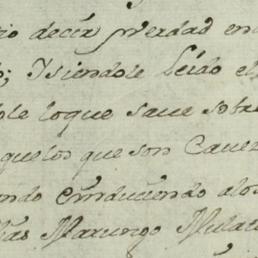 io decir verdad en
; Y siendole Leido el
ble loque save sobre
quelos que son Cavez
ndo conduciendo alos
las Marungo Mulat